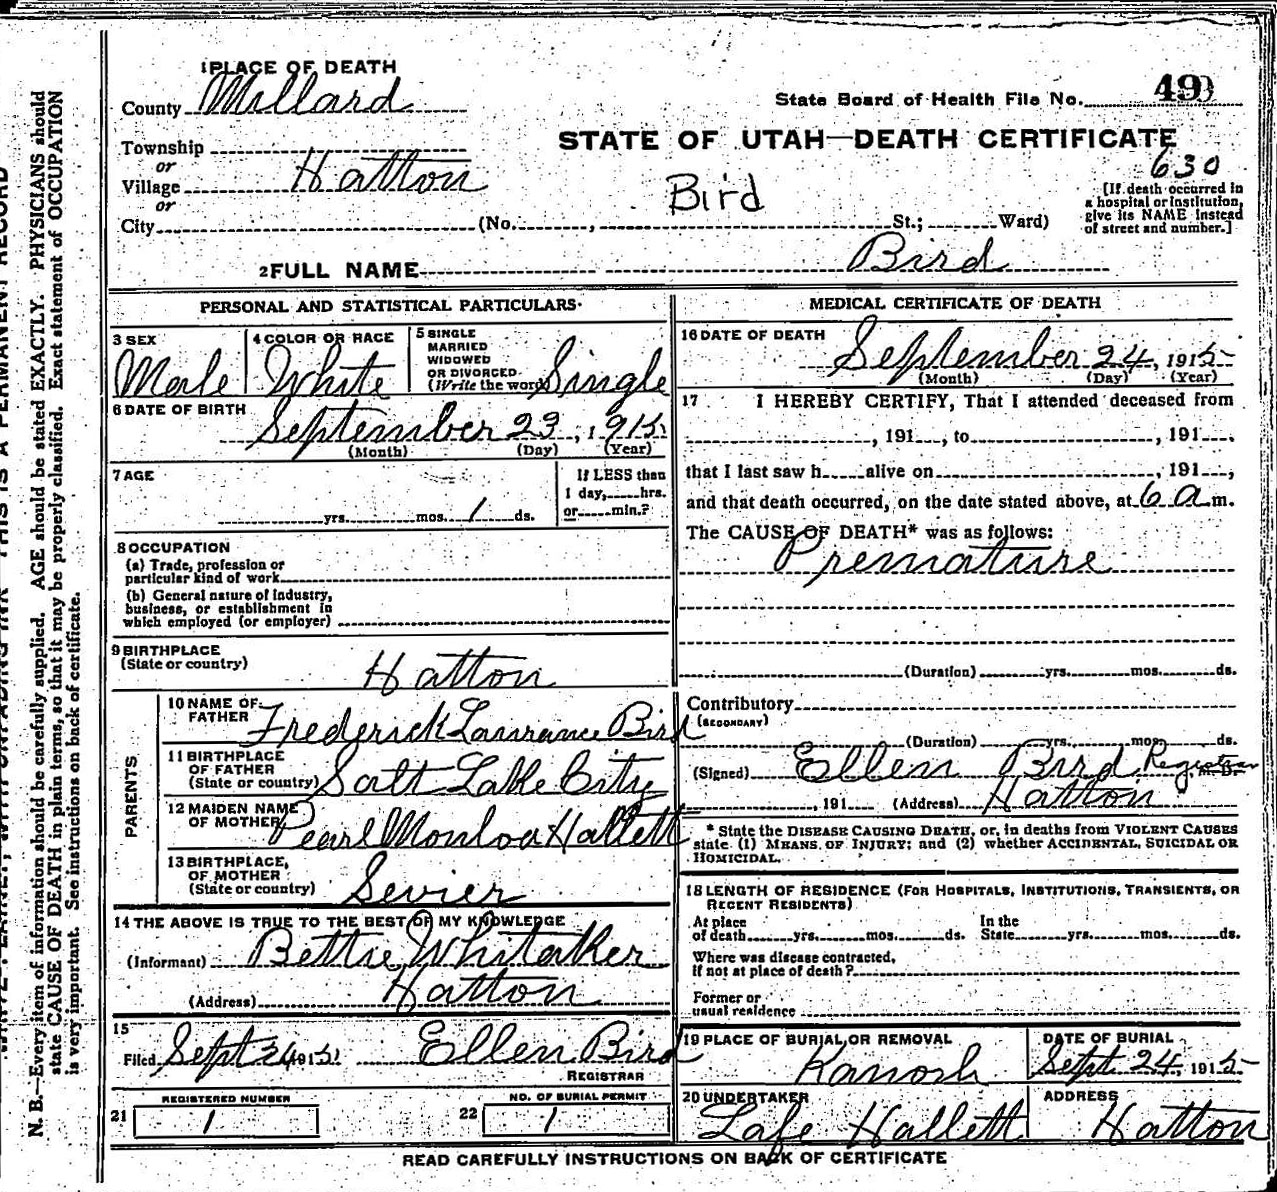 1 PLACE OF DEATH
County Millard
State Board of Health File No. 493
Township
STATE OF UTAH—DEATH CERTIFICATE
or
Village Hatton
630
or
Bird
[If death occurred in
a hospital or institution,
give its NAME instead
of street and number.]
City (No. , St.; Ward)
2 FULL NAME Bird
PERSONAL AND STATISTICAL PARTICULARS
3 SEX
Male
4 COLOR OR RACE
White
5 SINGLE
MARRIED
WIDOWED
OR DIVORCED
(Write the word) Single
6 DATE OF BIRTH
September 23, 1915
(Month) (Day) (Year)
7 AGE
yrs. mos. 1 ds.
If LESS than
1 day, hrs.
or min.?
8 OCCUPATION
(a) Trade, profession or
particular kind of work
(b) General nature of industry,
business, or establishment in
which employed (or employer)
9 BIRTHPLACE
(State or country)
Hatton
PARENTS
10 NAME OF
FATHER Frederick Lawrance Bird
11 BIRTHPLACE
OF FATHER
(State or country) Salt Lake City
12 MAIDEN NAME
OF MOTHER Pearl Hallett
13 BIRTHPLACE,
OF MOTHER
(State or country) Sevier
14 THE ABOVE IS TRUE TO THE BEST OF MY KNOWLEDGE
(Informant) Bettie Whitaker
(Address) Hatton
15
Filed Sept 24 1915 Ellen Bird
REGISTRAR
REGISTERED NUMBER
21 1
NO. OF BURIAL PERMIT
22 1
MEDICAL CERTIFICATE OF DEATH
16 DATE OF DEATH
September 24, 1915
(Month) (Day) (Year)
17 I HEREBY CERTIFY, That I attended deceased from
, 191 , to , 191 ,
that I last saw h alive on , 191 ,
and that death occurred, on the date stated above, at 6 a m.
The CAUSE OF DEATH* was as follows:
Premature
(Duration) yrs. mos. ds.
Contributory
(SECONDARY)
(Duration) yrs. mos. ds.
(Signed) Ellen Bird Registrar M. D.
, 191 (Address) Hatton
* State the DISEASE CAUSING DEATH, or, in deaths from VIOLENT CAUSES
state (1) MEANS OF INJURY; and (2) whether ACCIDENTAL, SUICIDAL OR
HOMICIDAL.
18 LENGTH OF RESIDENCE (FOR HOSPITALS, INSTITUTIONS, TRANSIENTS, OR
RECENT RESIDENTS)
At place
of death yrs. mos. ds.
In the
State yrs. mos. ds.
Where was disease contracted,
if not at place of death?
Former or
usual residence
19 PLACE OF BURIAL OR REMOVAL
Kanosh
DATE OF BURIAL
Sept. 24, 1915
20 UNDERTAKER
Lafe Hallett
ADDRESS
Hatton
READ CAREFULLY INSTRUCTIONS ON BACK OF CERTIFICATE
N. B.—Every item of information should be carefully supplied. AGE should be stated EXACTLY. PHYSICIANS should
state CAUSE OF DEATH in plain terms, so that it may be properly classified. Exact statement of OCCUPATION
is very important. See instructions on back of certificate.